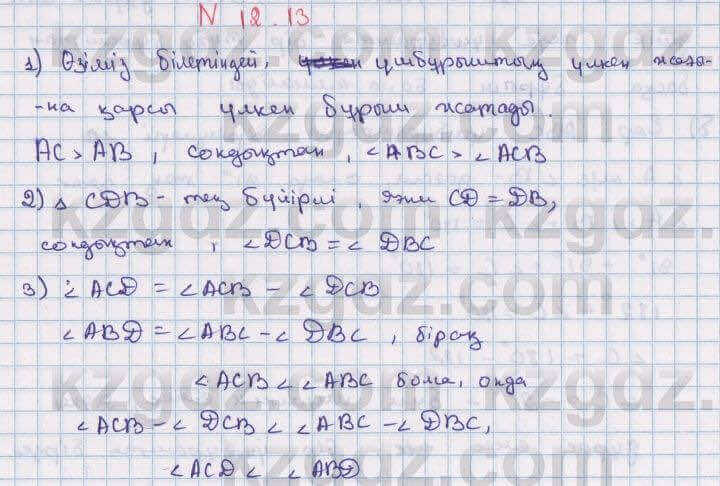 N 12.13
1) Өзіміз білетіндей, үшбұрыштың үлкен жағы-
-на қарсы үлкен бұрыш жатады.
AC > AB, сондықтан, ∠ABC > ∠ACB
2) △ CDB - тең бүйірлі, яғни CD = DB,
сондықтан, ∠DCB = ∠ DBC
3) ∠ ACD = ∠ACB - ∠ DCB
∠ABD = ∠ABC - ∠ DBC, бірақ
∠ACB < ∠ABC болса, онда
∠ACB - ∠ DCB < ∠ABC - ∠DBC,
∠ACD < ∠ABD
kzgdz.com